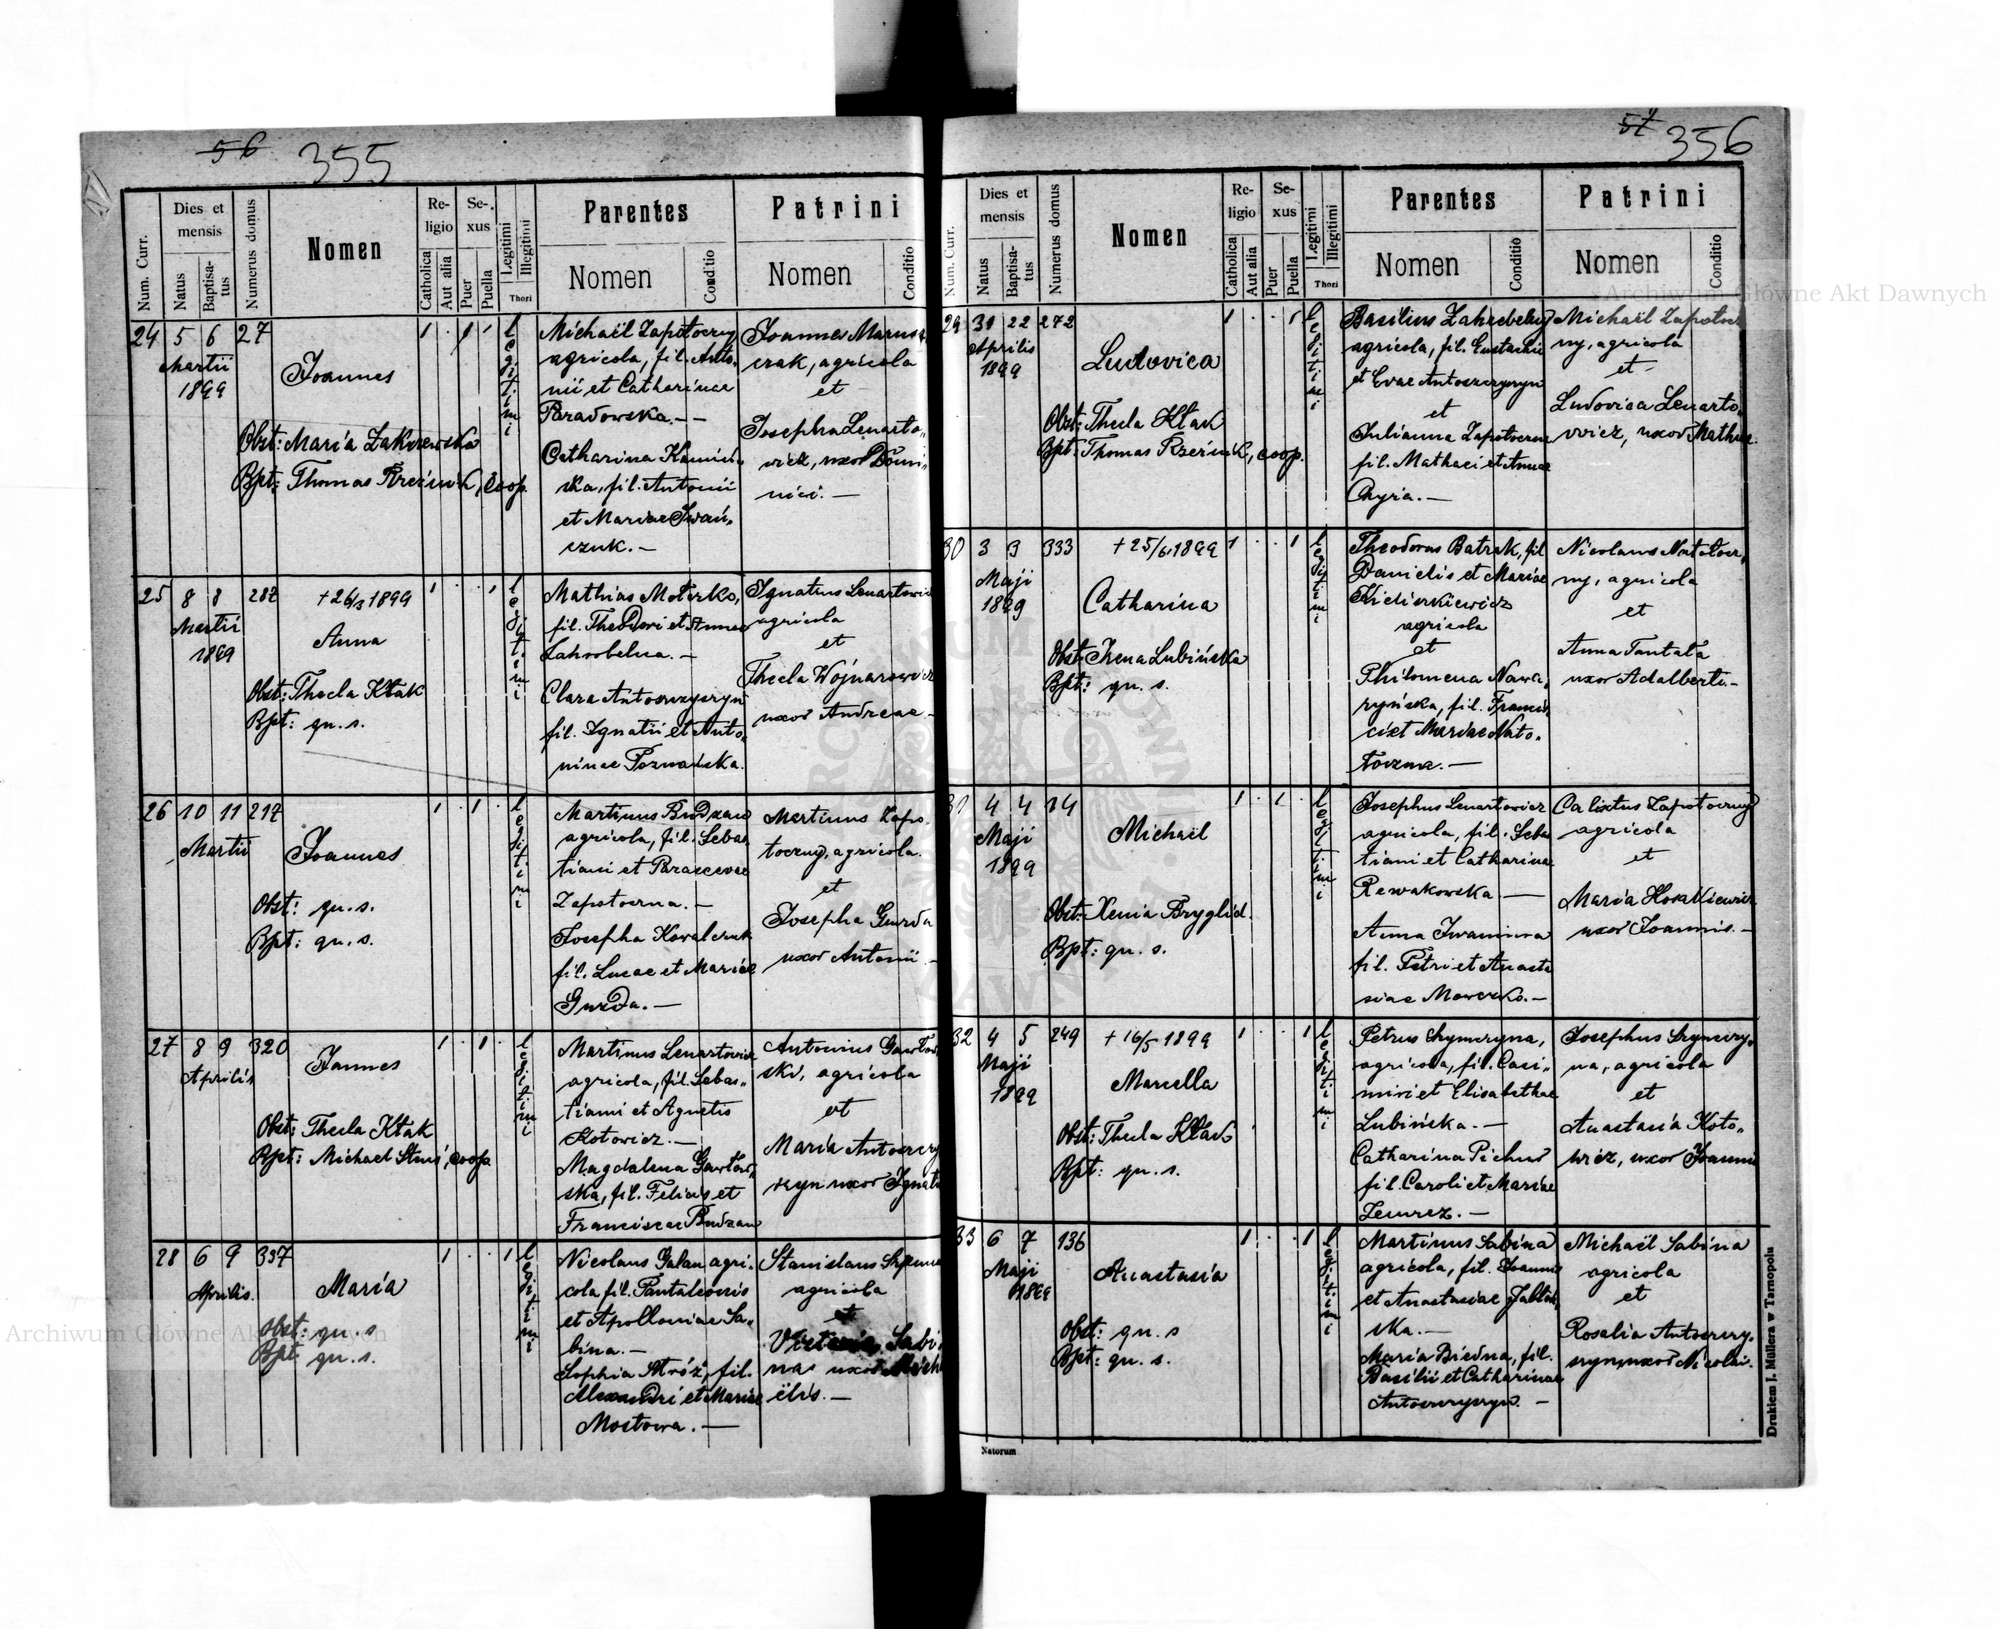 56 355
Num. Curr.
Dies et mensis
Natus
Baptisatus
Numerus domus
Nomen
Religio
Catholica
Aut alia
Sexus
Puer
Puella
Legitimi
Illegitimi
Thori
Parentes
Nomen
Conditio
Patrini
Nomen
Conditio
24 5 6 27
Martii
1899
Joannes
Obst: Maria Zakrzewska
Bpt: Thomas Rzeźnik, coop.
1 . 1 .
legitimi
Michaël Zapotoczny
agricola, fil. Anto-
nii et Catharinae
Paradowska. —
Catharina Kamiń-
ska, fil. Antonii
et Mariae Iwań-
czuk. —
Joannes Marusz-
czak, agricola
et
Josepha Lenarto-
wicz, uxor Domi-
nici. —
25 8 8 287
Martii
1899
+ 26/3 1899
Anna
Obst: Thecla Kłak
Bpt: qu. s.
1 . . 1
legitimi
Mathias Moterko,
fil. Theodori et Annae
Zahrebelna. —
Clara Antoszczyszyn
fil. Ignatii et Anto-
ninae Poznańska.
Ignatius Lenartowicz
agricola
et
Thecla Wojnarowicz
uxor Andreae —
26 10 11 217
Martii
Joannes
Obst: qu. s.
Bpt: qu. s.
1 . 1 .
legitimi
Martinus Budzan
agricola, fil. Sebas-
tiani et Parascevae
Zapotoczna. —
Josepha Kowalczuk
fil. Lucae et Mariae
Gurda. —
Martinus Zapo-
toczny, agricola
et
Josepha Gurda
uxor Antonii —
27 8 9 320
Aprilis
Joannes
Obst: Thecla Kłak
Bpt: Michael coop
1 . 1 .
legitimi
Martinus Lenartowicz
agricola, fil. Sebas-
tiani et Agnetis
Kotowicz. —
Magdalena Gawłow-
ska, fil. Felicis et
Franciscae Budzan
Antonius Gawłow-
ski, agricola
et
Maria Antoszczy-
szyn uxor Ignatii
28 6 9 337
Aprilis.
Maria
Obst: qu. s
Bpt qu. s.
1 . . 1
legitimi
Nicolaus Galan agri-
cola fil. Pantaleonis
et Apolloniae Sa-
bina. —
Sophia Stróż, fil.
Alexandri et Mariae
Mostowa. —
Stanislaus
agricola
et
Victoria Sabi-
na uxor Mich-
aëlis. —
57 356
Num. Curr.
Dies et mensis
Natus
Baptisatus
Numerus domus
Nomen
Religio
Catholica
Aut alia
Sexus
Puer
Puella
Legitimi
Illegitimi
Thori
Parentes
Nomen
Conditio
Patrini
Nomen
Conditio
29 31 22 272
Aprilis
1899
Ludovica
Obst: Thecla Kłak
Bpt: Thomas Rzeźnik, coop.
1 . . 1
legitimi
Basilius Zahrebelny
agricola, fil. Eustachii
et Evae Antoszczyszyn
et
Julianna Zapotoczna
fil. Mathaei et Annae
Chyra. —
Michaël Zapotocz-
ny, agricola
et
Ludovica Lenarto-
wicz, uxor Mathiae.
30 3 3 333
Maji
1899
+ 25/6 1899
Catharina
Obst: Irena Lubińska
Bpt: qu. s.
1 . . 1
legitimi
Theodorus Batrak, fil
Danielis et Mariae
agricola
et
Philomena Nawa-
ryńska, fil. Francis-
ci et Mariae Nato-
toczna. —
Nicolaus Natotocz-
ny, agricola
et
Anna Tantała
uxor Adalberti. —
31 4 4 14
Maji
1899
Michaël
Obst: Xenia Bryglid.
Bpt: qu. s.
1 . 1 .
legitimi
Josephus Lenartowicz
agricola, fil. Seba-
tiani et Catharinae
Rewakowska. —
Anna Iwaniwna
fil. Petri et Anasta-
siae —
Calixtus Zapotoczny
agricola
et
Maria
uxor Joannis. —
32 4 5 249
Maji
1899
+ 16/5 1899
Marcella
Obst: Thecla Kłak
Bpt: qu. s.
1 . . 1
legitimi
Petrus Szymczyna,
agricola, fil. Casi-
miri et Elisabethae
Lubińska. —
Catharina Pichur
fil. Caroli et Mariae
—
Josephus Szymczy-
na, agricola
et
Anastasia Koto-
wicz, uxor Joannis
33 6 7 136
Maji
1899
Anastasia
Obst: qu. s
Bpt: qu. s.
1 . . 1
legitimi
Martinus Sabina
agricola, fil. Joannis
et Anastasiae Jabłoń-
ska. —
Maria Biedna, fil.
Basilii et Catharinae
Antoszczyszyn. —
Michaël Sabina
agricola
et
Rosalia Antoszczy-
szyn, uxor Nicolai.
Natorum
Drukiem J. Müllera w Tarnopolu
Archiwum Główne Akt Dawnych
Archiwum Główne Akt Dawnych